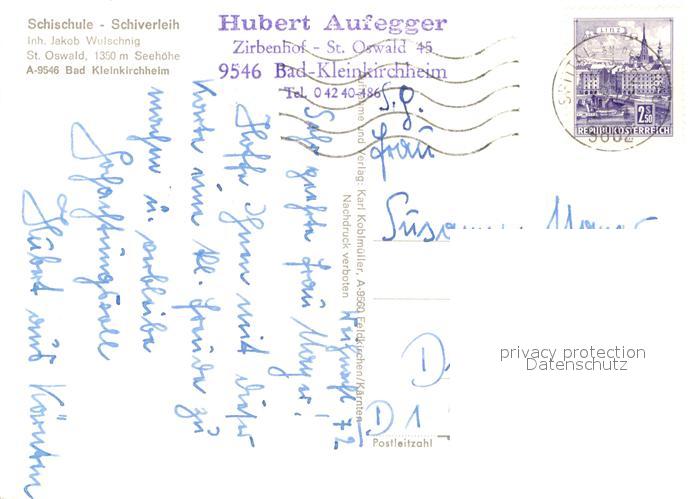 Schischule - Schiverleih
Inh. Jakob Wulschnig
St. Oswald, 1350 m Seehöhe
A-9546 Bad Kleinkirchheim
Hubert Aufegger
Zirbenhof - St. Oswald 45
9546 Bad-Kleinkirchheim
Tel. 0 42 40-486
LINZ
2 S 50
REPUBLIK ÖSTERREICH
S.g.
Frau
Weihnacht 72
Sehr geehrte Frau
Hoffe Ihnen mit dieser
Karte eine kl. Freude zu
machen u. verbleibe
Hochachtungsvoll
Hubert aus Kärnten
und Verlag: Karl Koblmüller, A-9560 Feldkirchen/Kärnten
Nachdruck verboten
D
D 1
Postleitzahl
privacy protection
Datenschutz